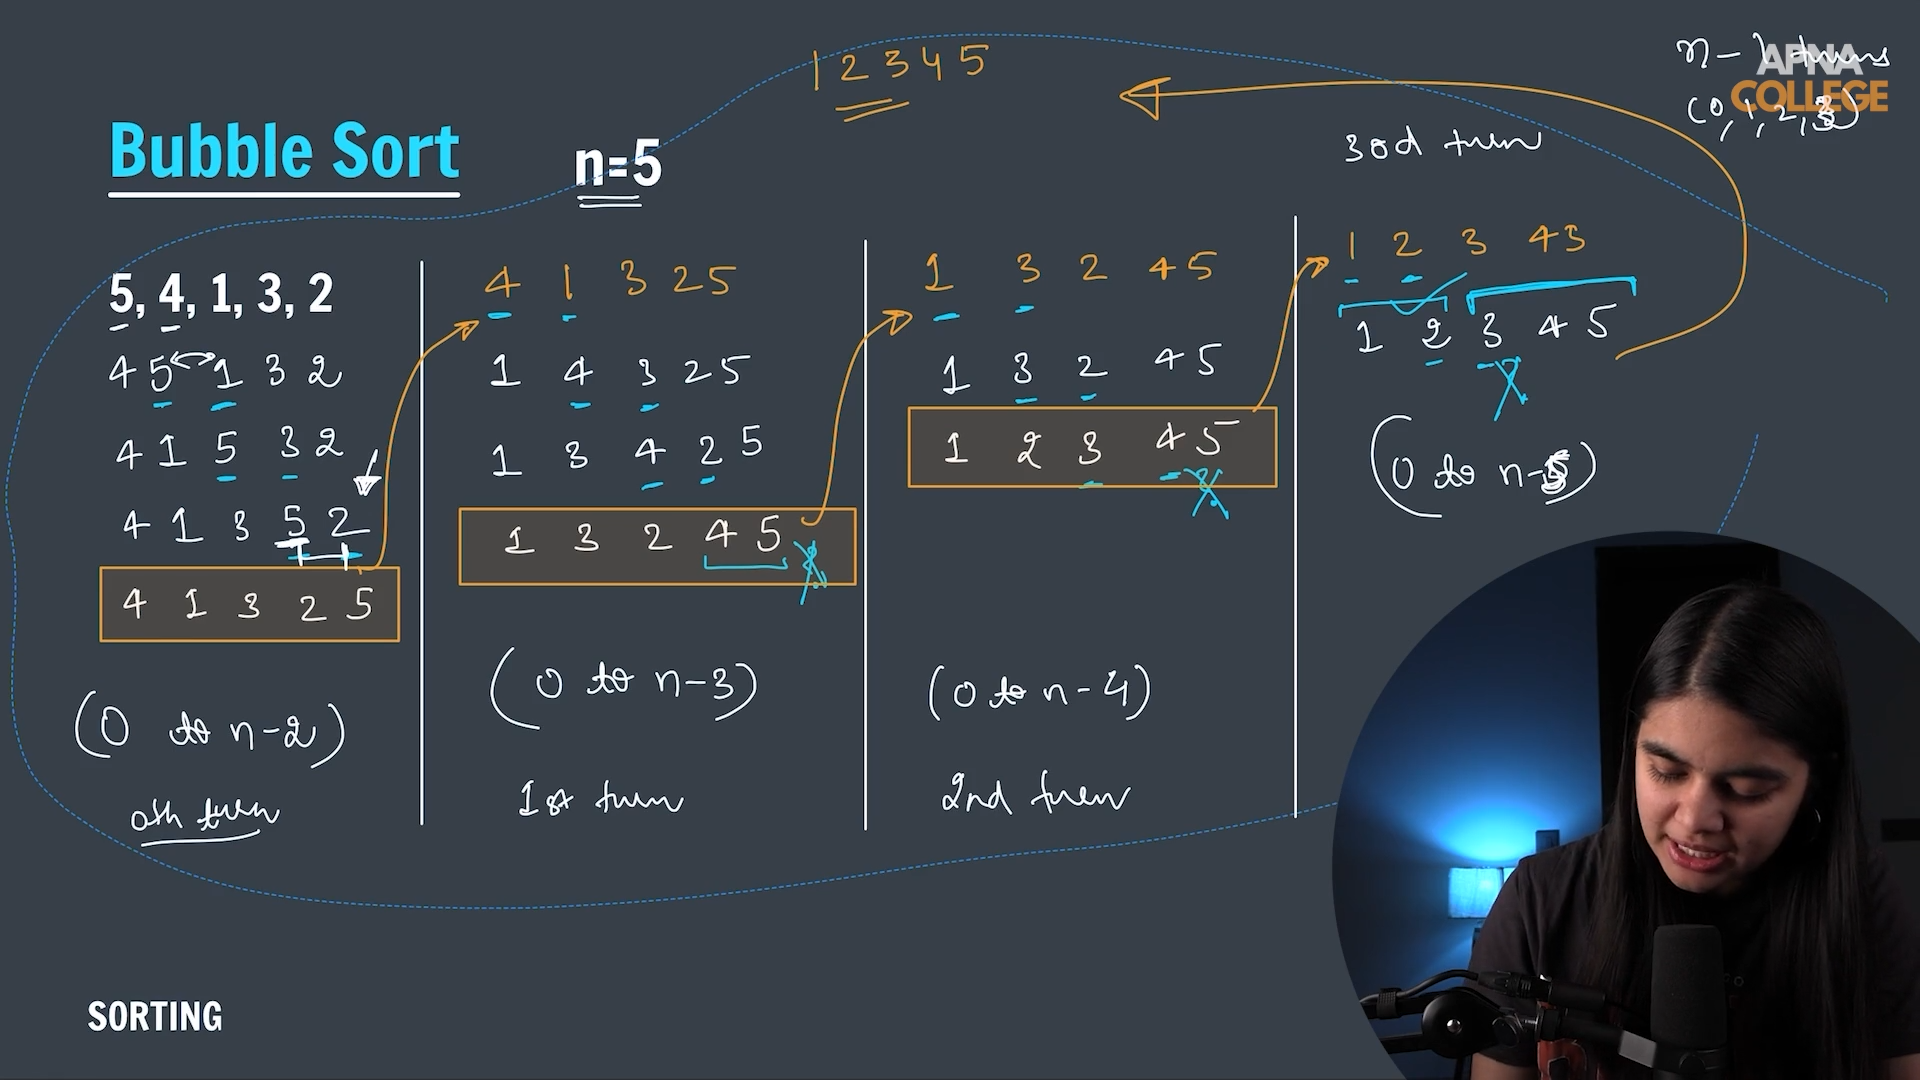 1 2 3 4 5
n-1 turns
APNA
COLLEGE
(0, 1, 2, 3)
Bubble Sort
n=5
3rd turn
5, 4, 1, 3, 2
4 5 1 3 2
4 1 5 3 2
4 1 3 5 2
4 1 3 2 5
(0 to n-2)
0th turn
4 1 3 2 5
1 4 3 2 5
1 3 4 2 5
1 3 2 4 5
(0 to n-3)
1st turn
1 3 2 4 5
1 3 2 4 5
1 2 3 4 5
(0 to n-4)
2nd turn
1 2 3 4 5
1 2 3 4 5
(0 to n-5)
SORTING